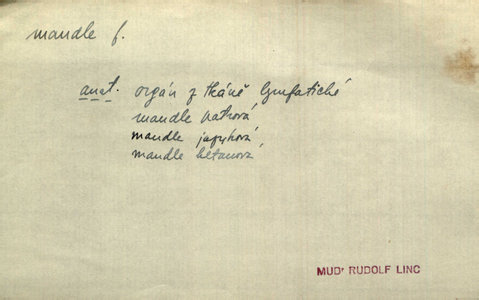 mandle f.
anat. orgán z tkáně lymfatické
mandle patrová
mandle jazyková
mandle hltanová
MUDr RUDOLF LINC